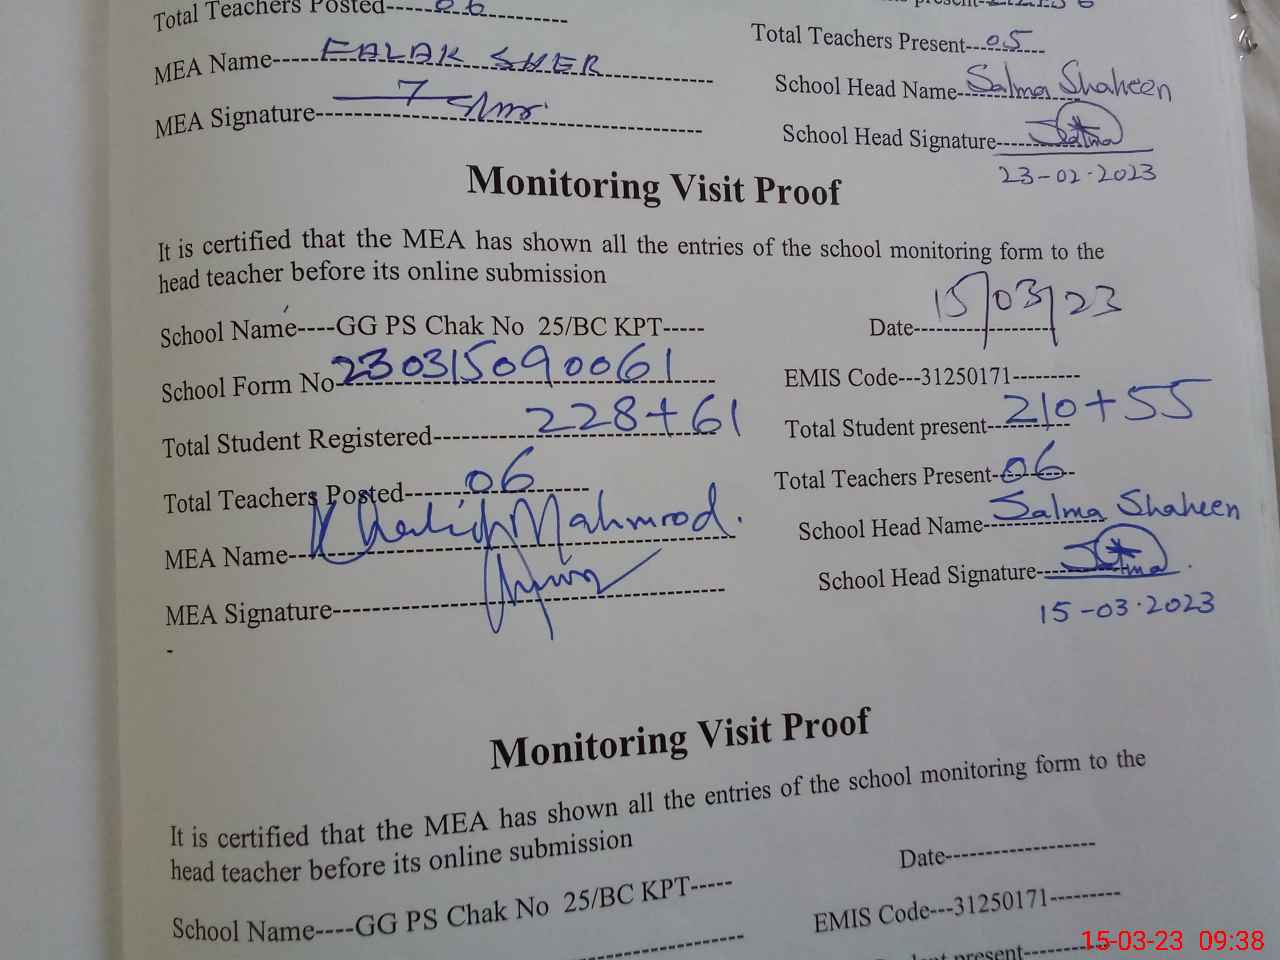 Total Teachers Posted-----06-----------
Total Teachers Present---05----
MEA Name-----FALAK SHER-----------
School Head Name--Salma Shaheen
MEA Signature-----------------
School Head Signature------Salma
23-02-2023
Monitoring Visit Proof
It is certified that the MEA has shown all the entries of the school monitoring form to the
head teacher before its online submission
School Name----GG PS Chak No 25/BC KPT-----
Date---15/03/23
School Form No 230315090061
EMIS Code---31250171---------
Total Student Registered----------228+61
Total Student present--210+55
Total Teachers Posted-------06------
Total Teachers Present-06--
MEA Name--Khalid Mahmood.
School Head Name--Salma Shaheen
MEA Signature-----------------
School Head Signature----Salma
15-03-2023
-
Monitoring Visit Proof
It is certified that the MEA has shown all the entries of the school monitoring form to the
head teacher before its online submission
Date------------------
School Name----GG PS Chak No 25/BC KPT-----
EMIS Code---31250171---------
present-----------
15-03-23 09:38